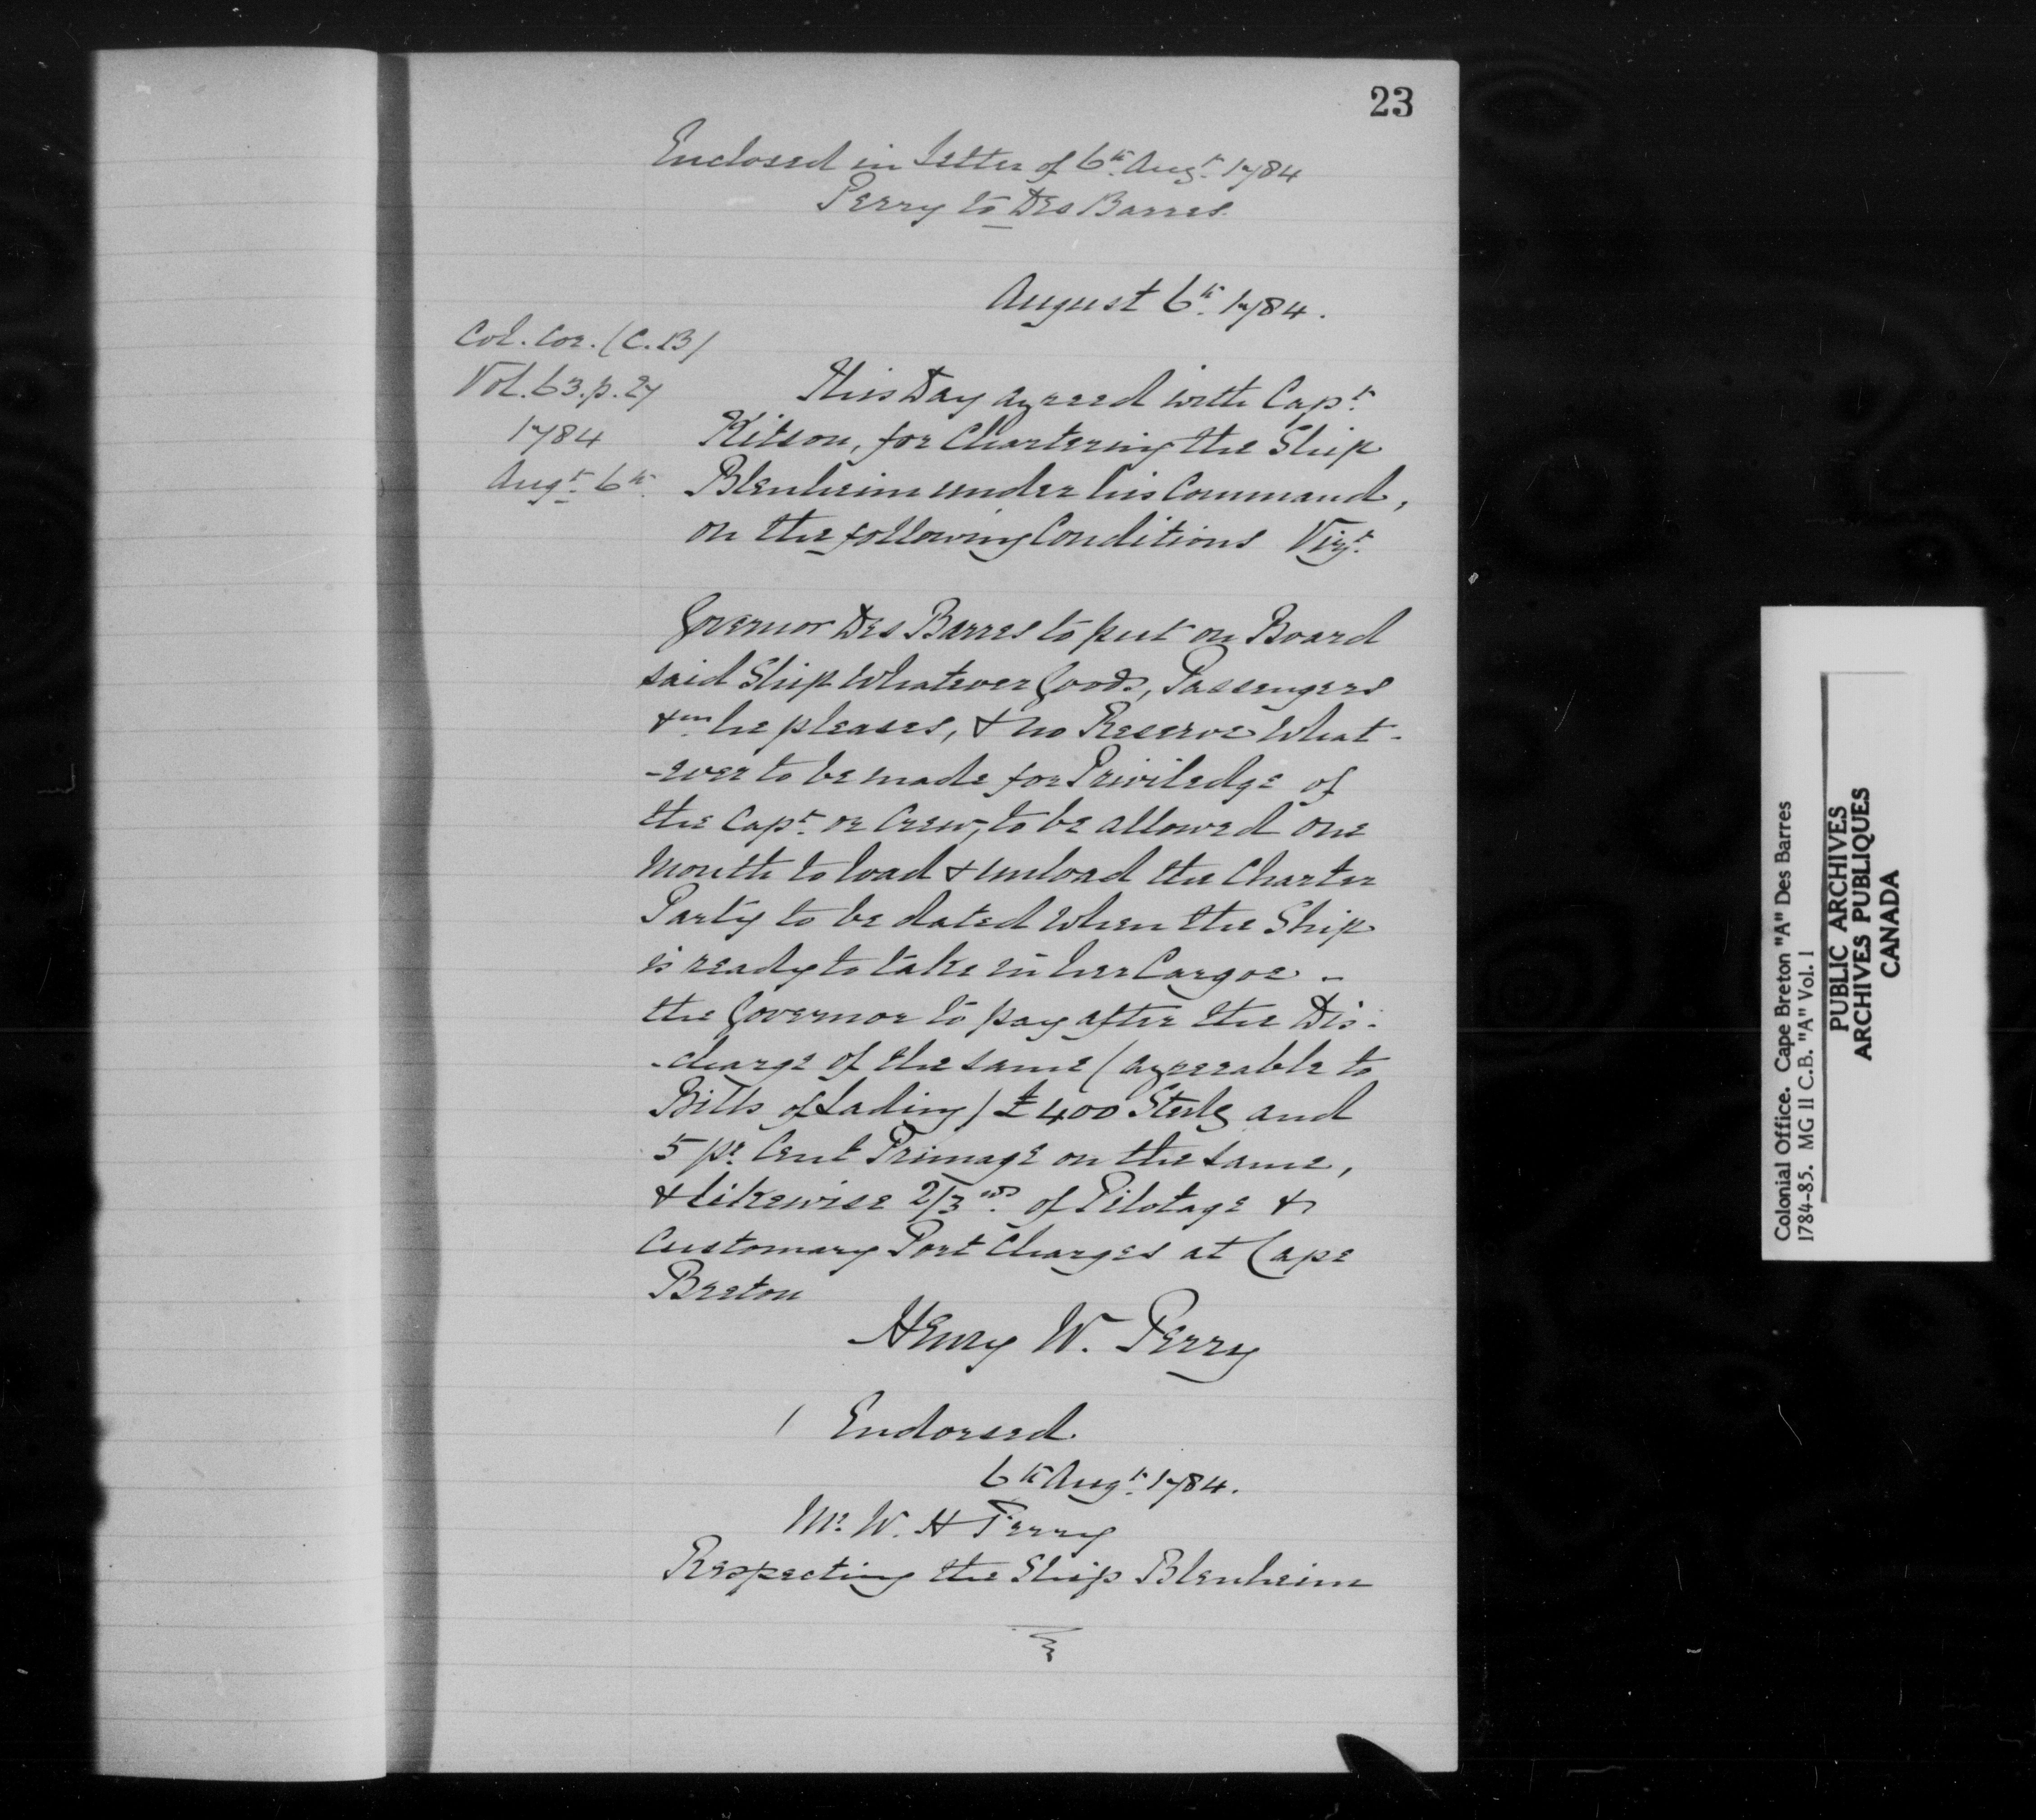 23
Enclosed in Letter of 6th Augt 1784
Perry to Des Barres
August 6th 1784.
Col. Cor. (C.B)
Vol. 63. p. 27
1784
Augt 6th
This Day agreed with Capt
Kitson, for Chartering the Ship
Blenheim under his Command,
on the following Conditions Vizt
Governor Des Barres to put on Board
said Ship Whatever Goods, Passengers
he pleases, & no Reserve What-
-ever to be made for Priviledge of
the Capt. or Crew, to be allowed one
Month to load & unload the Charter
Party to be dated When the Ship
is ready to take in her Cargoe -
the Governor to pay after the Dis-
-charge of the same (agreeable to
Bills of Lading) £400 Sterlg and
5 pr Cent Primage on the same,
& likewise 2/3rds of Pilotage &
Customary Port Charges at Cape
Breton
Henry W. Perry
( Endorsed
6th Augt 1784.
Mr W. H Perry
Respecting the Ship Blenheim
Colonial Office. Cape Breton "A" Des Barres
1784-85. MG 11 C.B. "A" Vol. 1
PUBLIC ARCHIVES
ARCHIVES PUBLIQUES
CANADA